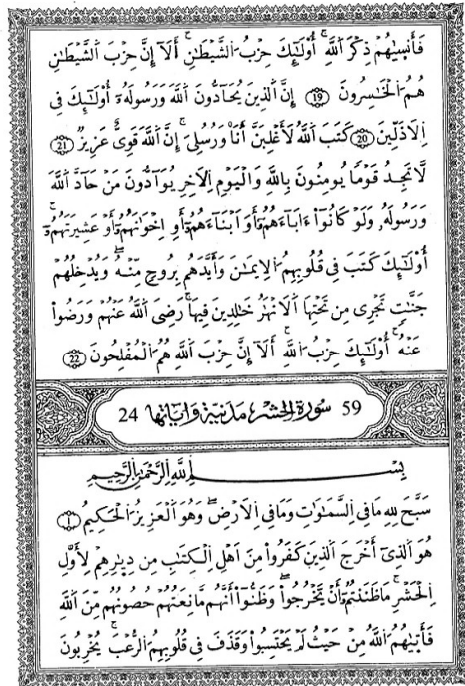 فَأَنسَىٰهُمْ ذِكْرَ اَ۬للَّهِۖ أُوْلَٰٓئِكَ حِزْبُ اُ۬لشَّيْطَٰنِۖ أَلَآ إِنَّ حِزْبَ اَ۬لشَّيْطَٰنِ
هُمُ اُ۬لْخَٰسِرُونَ 19 إِنَّ اَ۬لذِينَ يُحَآدُّونَ اَ۬للَّهَ وَرَسُولَهُۥٓ أُوْلَٰٓئِكَ فِے
اِ۬لَاذَلِّينَ 20 كَتَبَ اَ۬للَّهُ لَأَغْلِبَنَّ أَنَا۠ وَرُسُلِيَۖ إِنَّ اَ۬للَّهَ قَوِيٌّ عَزِيزٞ 21
لَّا تَجِدُ قَوْماٗ يُومِنُونَ بِاللَّهِ وَالْيَوْمِ اِ۬لَاخِرِ يُوَآدُّونَ مَنْ حَآدَّ اَ۬للَّهَ
وَرَسُولَهُۥ وَلَوْ كَانُوٓاْ ءَابَآءَهُمُۥٓ أَوَ اَبْنَآءَهُمُۥٓ أَوِ اِخْوَٰنَهُمُۥٓ أَوْ عَشِيرَتَهُمُۥٓۖ
أُوْلَٰٓئِكَ كَتَبَ فِے قُلُوبِهِمُ اُ۬لِايمَٰنَ وَأَيَّدَهُم بِرُوحٖ مِّنْهُۖ وَيُدْخِلُهُمْ
جَنَّٰتٖ تَجْرِے مِن تَحْتِهَا اَ۬لَانْهَٰرُ خَٰلِدِينَ فِيهَاۖ رَضِيَ اَ۬للَّهُ عَنْهُمْ وَرَضُواْ
عَنْهُۖ أُوْلَٰٓئِكَ حِزْبُ اُ۬للَّهِۖ أَلَآ إِنَّ حِزْبَ اَ۬للَّهِ هُمُ اُ۬لْمُفْلِحُونَ 22
59 سُورَةُ الْحَشْرِ مَدَنِيَّة وَءَايَاتُهَا 24
بِسْمِ اِ۬للَّهِ اِ۬لرَّحْمَٰنِ اِ۬لرَّحِيمِ
سَبَّحَ لِلهِ مَا فِے اِ۬لسَّمَٰوَٰتِ وَمَا فِے اِ۬لَارْضِۖ وَهُوَ اَ۬لْعَزِيزُ اُ۬لْحَكِيمُ 1
هُوَ اَ۬لذِےٓ أَخْرَجَ اَ۬لذِينَ كَفَرُواْ مِنَ اَهْلِ اِ۬لْكِتَٰبِ مِن دِيٰ۪رِهِمْ لِأَوَّلِ
اِ۬لْحَشْرِۖ مَا ظَنَنتُمُۥٓ أَنْ يَّخْرُجُواْۖ وَظَنُّوٓاْ أَنَّهُم مَّانِعَتُهُمْ حُصُونُهُم مِّنَ اَ۬للَّهِ
فَأَتَىٰهُمُ اُ۬للَّهُ مِنْ حَيْثُ لَمْ يَحْتَسِبُواْ وَقَذَفَ فِے قُلُوبِهِمُ اُ۬لرُّعْبَۖ يُخْرِبُونَ